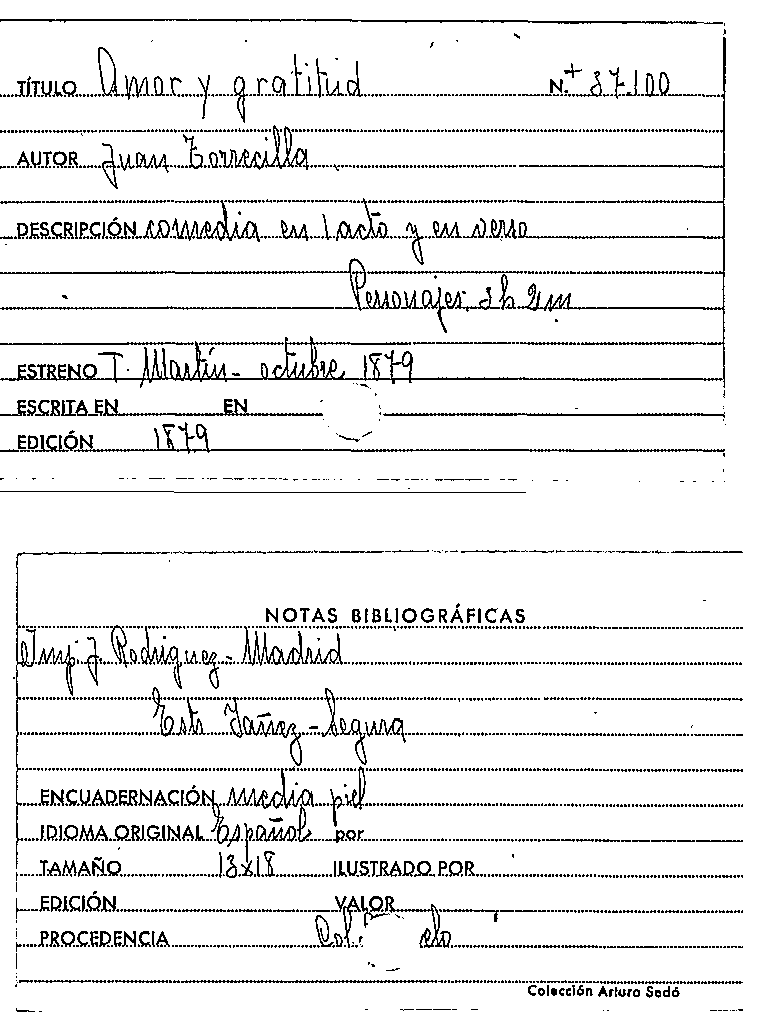 TÍTULO Amor y gratitud N.+ 37.100
AUTOR Juan Torrecilla
DESCRIPCIÓN comedia en 1 acto y en verso
Personajes. 3 h 2 m
ESTRENO T. Martín - octubre 1879
ESCRITA EN EN
EDICIÓN 1879
NOTAS BIBLIOGRÁFICAS
Imp. J. Rodriguez - Madrid
Estr Yañez - Segura
ENCUADERNACIÓN media piel
IDIOMA ORIGINAL Español por
TAMAÑO 13x18 ILUSTRADO POR
EDICIÓN VALOR
PROCEDENCIA Col.
Colección Arturo Sedó